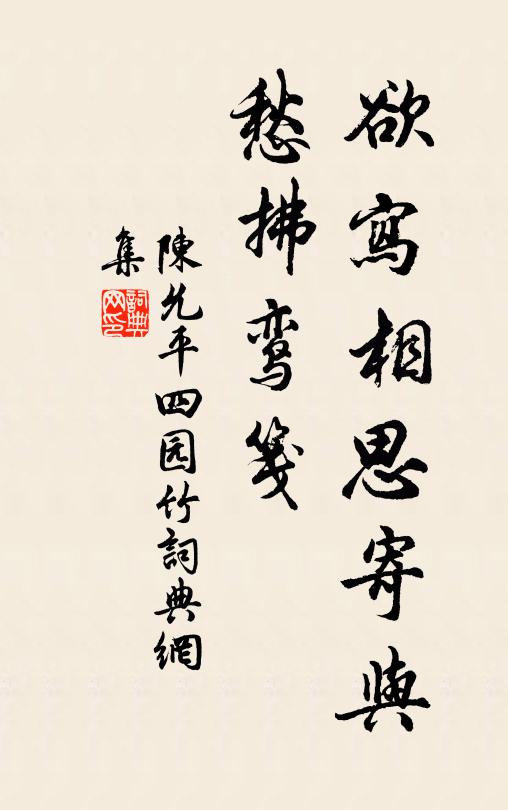 欲寫相思寄與
愁拂鸾箋
陳允平四园竹詞典網
集
詞典网印